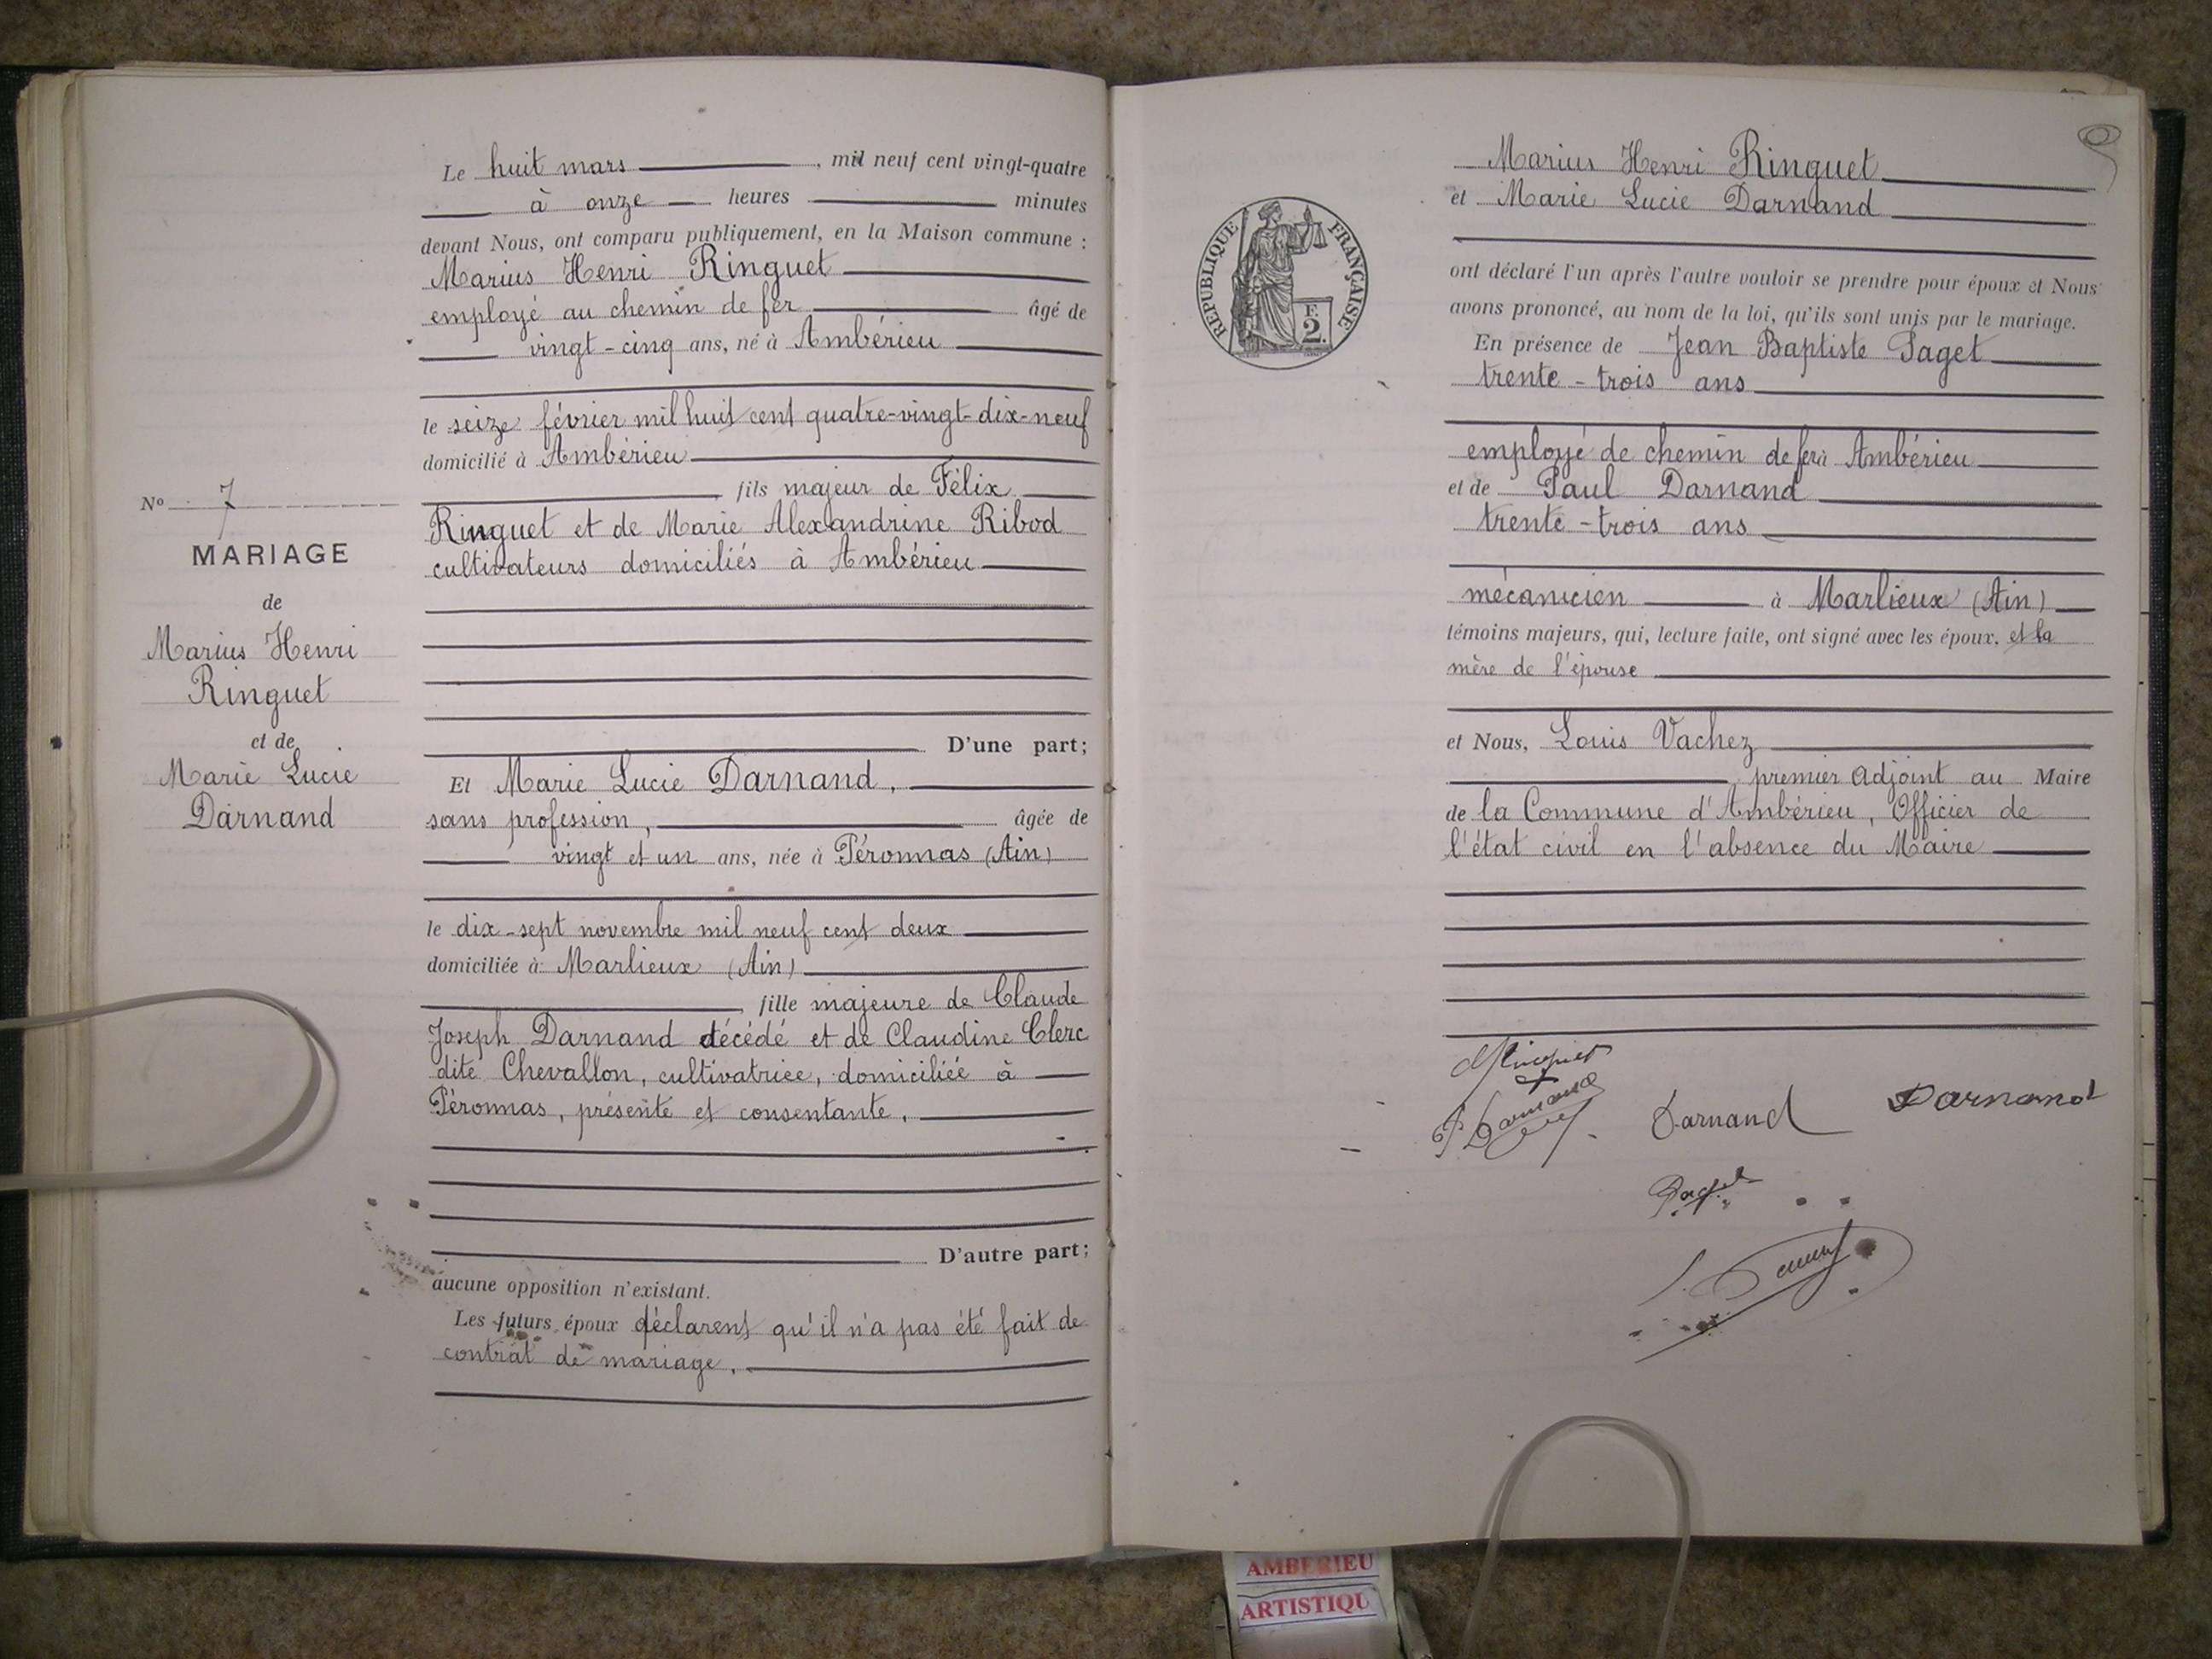 Le huit mars, mil neuf cent vingt-quatre
à onze heures minutes
devant Nous, ont comparu publiquement, en la Maison commune :
Marius Henri Ringuet
employé au chemin de fer âgé de
vingt-cinq ans, né à Ambérieu
le seize février mil huit cent quatre-vingt-dix-neuf
domicilié à Ambérieu
fils majeur de Félix
Ringuet et de Marie Alexandrine Ribod
cultivateurs domiciliés à Ambérieu
D'une part;
Et Marie Lucie Darnand,
sans profession, âgée de
vingt et un ans, née à Péronnas (Ain)
le dix-sept novembre mil neuf cent deux
domiciliée à Marlieux (Ain)
fille majeure de Claude
Joseph Darnand décédé et de Claudine Clerc
dite Chevallon, cultivatrice, domiciliée à
Péronnas, présente et consentante,
D'autre part;
aucune opposition n'existant.
Les futurs époux déclarent qu'il n'a pas été fait de
contrat de mariage.
No 7
MARIAGE
de
Marius Henri
Ringuet
et de
Marie Lucie
Darnand
RÉPUBLIQUE FRANÇAISE
F.
2.
Marius Henri Ringuet
et Marie Lucie Darnand
ont déclaré l'un après l'autre vouloir se prendre pour époux et Nous
avons prononcé, au nom de la loi, qu'ils sont unis par le mariage.
En présence de Jean Baptiste Paget
trente-trois ans
employé de chemin de fer à Ambérieu
et de Paul Darnand
trente-trois ans
mécanicien à Marlieux (Ain)
témoins majeurs, qui, lecture faite, ont signé avec les époux. et la
mère de l'épouse
et Nous, Louis Vachez
premier Adjoint au Maire
de la Commune d'Ambérieu, Officier de
l'état civil en l'absence du Maire
Ringuet
P Darnand
Darnand
Darnand
Paget
AMBERIEU
ARTISTIQU